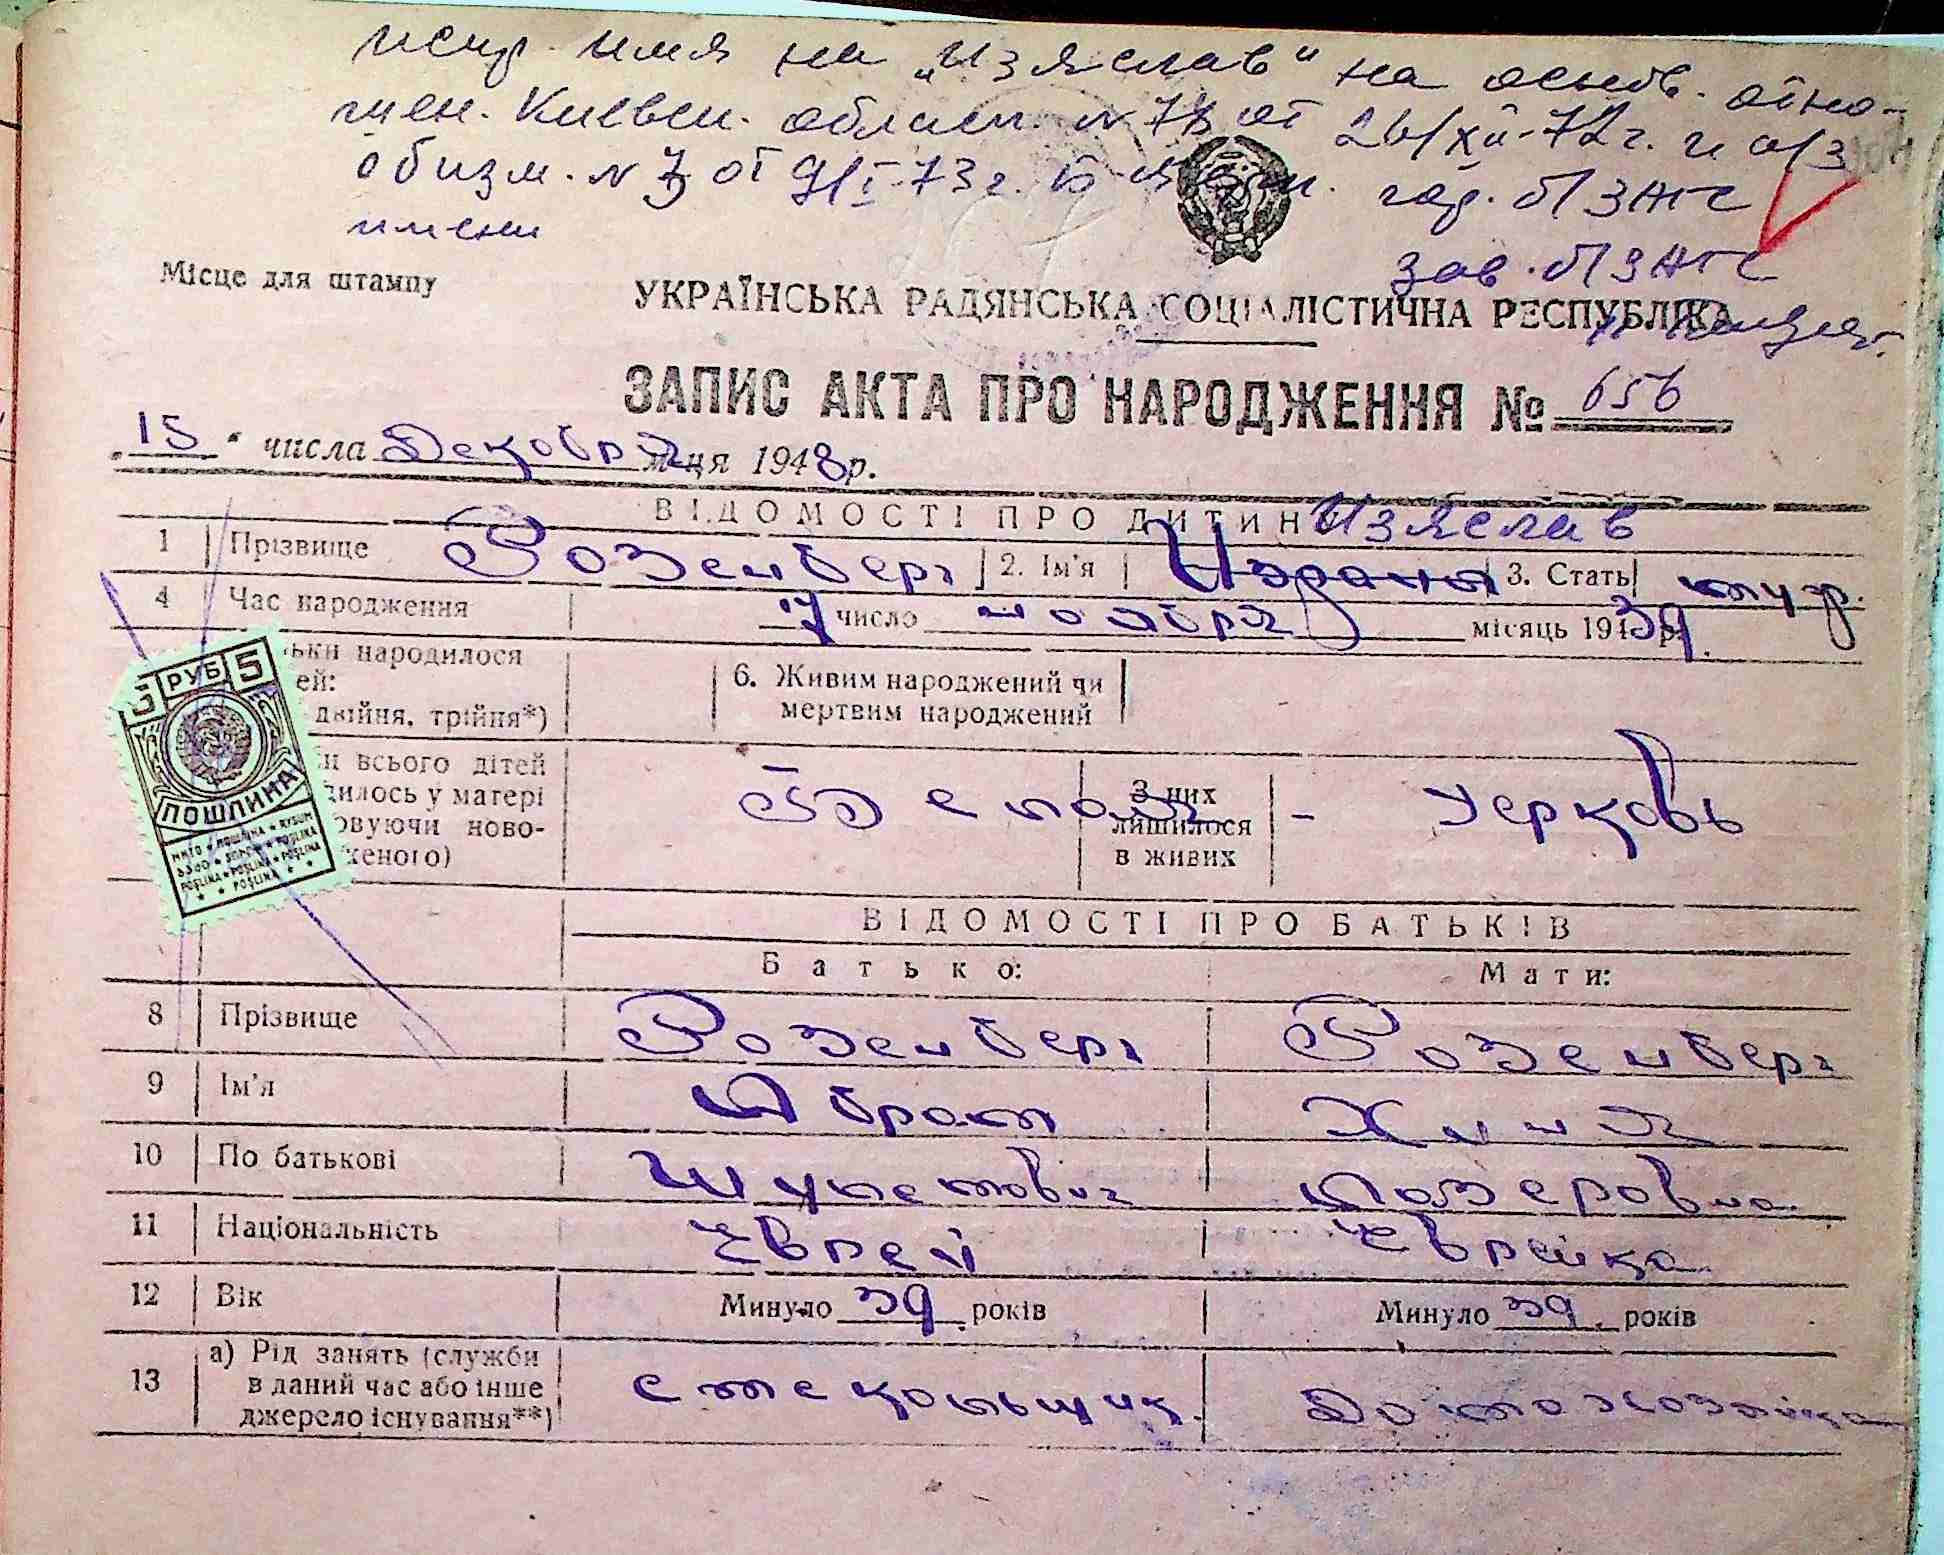 испр. имя на „Изяслав“ на основ. отно-
шен. Киевск. област. N 78 от 26/XII-72г. и а/з
об изм. N 3 от 9/I-73г. гор. б/ЗАГС
имени
зав. б/ЗАГС
Місце для штампу
УКРАЇНСЬКА РАДЯНСЬКА СОЦІАЛІСТИЧНА РЕСПУБЛІКА
ЗАПИС АКТА ПРО НАРОДЖЕННЯ № 656
„15“ числа Декабря м-ця 1948р.
ВІДОМОСТІ ПРО ДИТИНУ Изяслав
1 Прізвище Розенберг 2. Ім'я 3. Стать муж.
4 Час народження 17 число ноября місяць 1939 р.
ьки народилося
ей:
двійня, трійня*)
6. Живим народжений чи
мертвим народжений
5 РУБ 5
ПОШЛИНА
и всього дітей
дилось у матері
овуючи ново-
женого)
Белая
З них
лишилося
в живих
- Церковь
ВІДОМОСТІ ПРО БАТЬКІВ
Батько: Мати:
8 Прізвище Розенберг Розенберг
9 Ім'я Абрам Хиня
10 По батькові Шулемович Лазеровна.
11 Національність Еврей Еврейка
12 Вік Минуло 39 років Минуло 39 років
13 а) Рід занять (служби
в даний час або інше
джерело існування**)
стекольщик. Домохозяйка